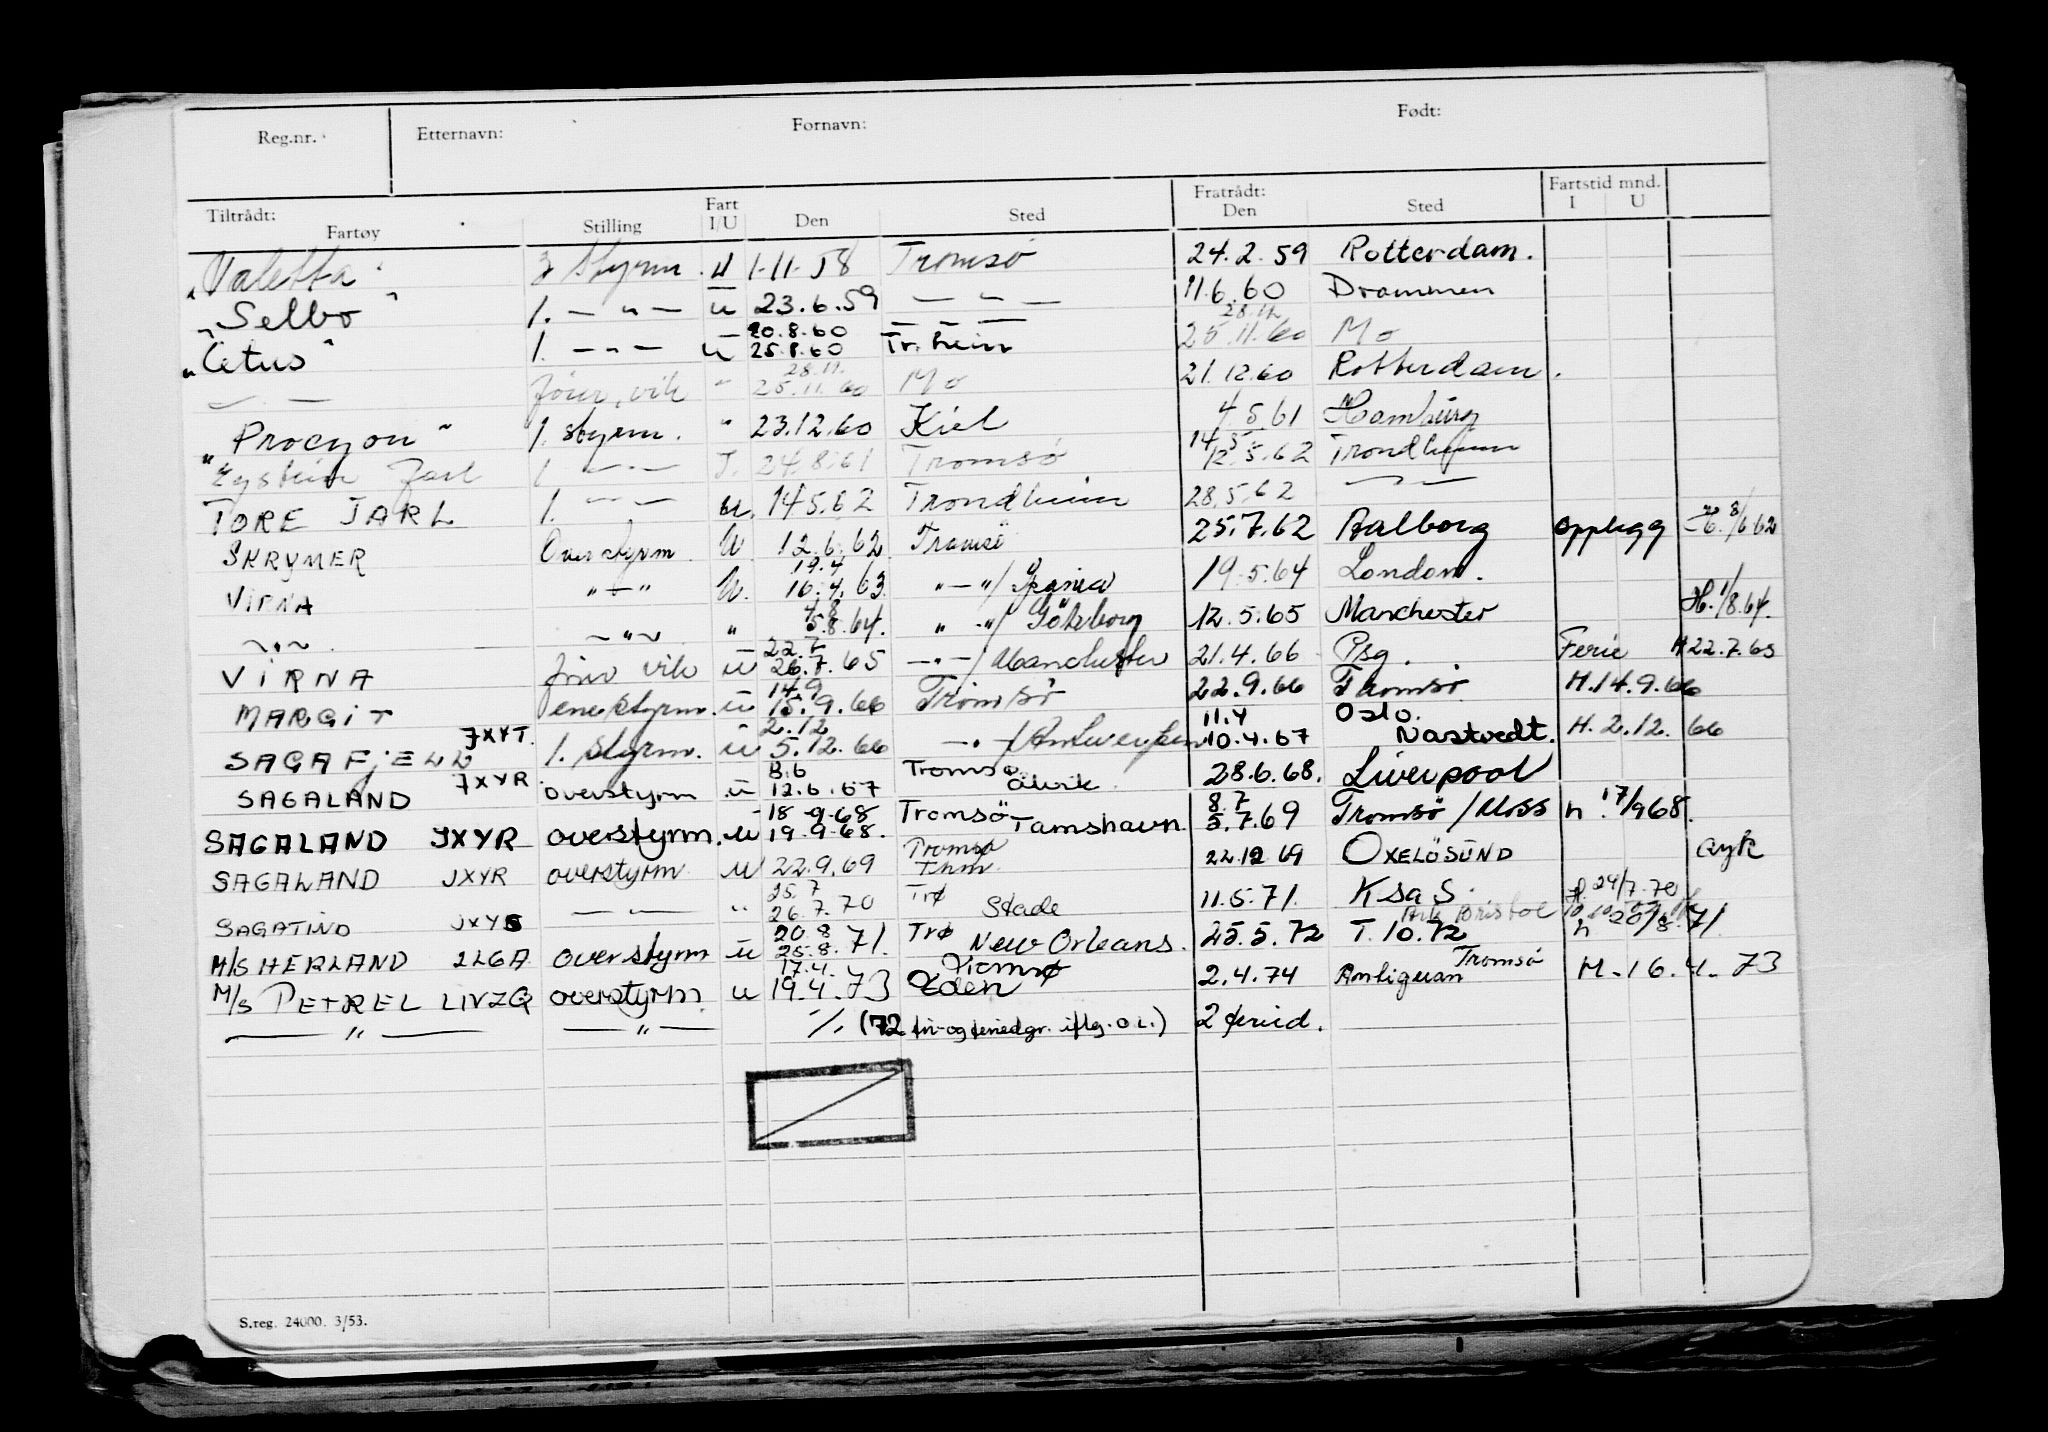 Reg.nr. Etternavn: Fornavn: Født:
Tiltrådt: Fartøy Stilling Fart I/U Den Sted Fratrådt: Den Sted Fartstid mnd. I U
"Valetta" 3 styrm. U 1-11-58 Tromsø 24.2.59 Rotterdam.
"Selbo" 1. — " — u 23.6.59 — " — 11.6.60 Drammen
20.8.60 — — — 28.12
"Cetus" 1. — " — u 25.8.60 Tr.heim 25.11.60 Mo
28.11.
— " — vik " 25.11.60 Mo 21.12.60 Rotterdam.
"Procyon" 1. styrm. " 23.12.60 Kiel 4.5.61 Hamburg
14/5
"Eystein Jarl 1 — " — I. 24.8.61 Tromsø 12.5.62 Trondheim
TORE JARL 1. — " — u. 14.5.62 Trondheim 28.5.62 — " —
SKRYMER Overstyrm. U 12.6.62 Tromsø 25.7.62 Aalborg Opplegg 8/6 62
19.4
VIRNA " — " U. 16.4.63 " — "/Spania 19.5.64 London.
4.8
~ " ~ ~ " ~ " 5.8.64. " — "/Göteborg 12.5.65 Manchester H. 1/8.64.
22.7
VIRNA vik u 26.7.65 — " —/Manchester 21.4.66 Psg. Ferie H 22.7.65
14.9
MARGIT enestyrm. u 15.9.66 Tromsø 22.9.66 Tromsø H.14.9.66
2.12 11.4 Oslo.
SAGAFJELL JXYT. 1. styrm. u 5.12.66 — " —/Antwerpen 10.4.67 Nastvedt. H. 2.12. 66
8.6 Tromsø
SAGALAND JXYR overstyrm u 12.6.67 Ålvik. 28.6.68. Liverpool
18-9-68 Tromsø 8.7
SAGALAND JXYR overstyrm. u 19-9-68. Tamshavn. 5.7.69 Tromsø/Moss h. 17/9 68.
Tromsø
SAGALAND JXYR overstyrm u 22.9.69 22.12 69 OXELÖSUND avk
25.7 Trø H. 24/7-70
SAGATIND JXYS — " — " 26.7.70 Stade 11.5.71. KsaS.
20.8 Trø Bristol
M/S HERLAND 2LGA overstyrm u 25.8.71. New Orleans. 25.5.72 T.10.72 h 20/8.71.
17.4. Tromsø Tromsø
M/S PETREL LIVZQ overstyrm u 19.4.73 Eden 2.4.74 Antiguan M.16.4.73
— " — — " — ·/. (72 fri-og feriedgr. iflg. O.L.) 2 feried.
S.reg. 24000. 3/53.